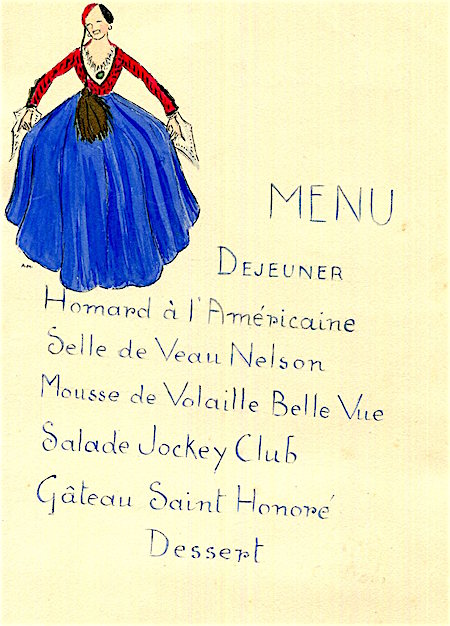 MENU
DEJEUNER
Homard à l'Américaine
Selle de Veau Nelson
Mousse de Volaille Belle Vue
Salade Jockey Club
Gâteau Saint Honoré
Dessert